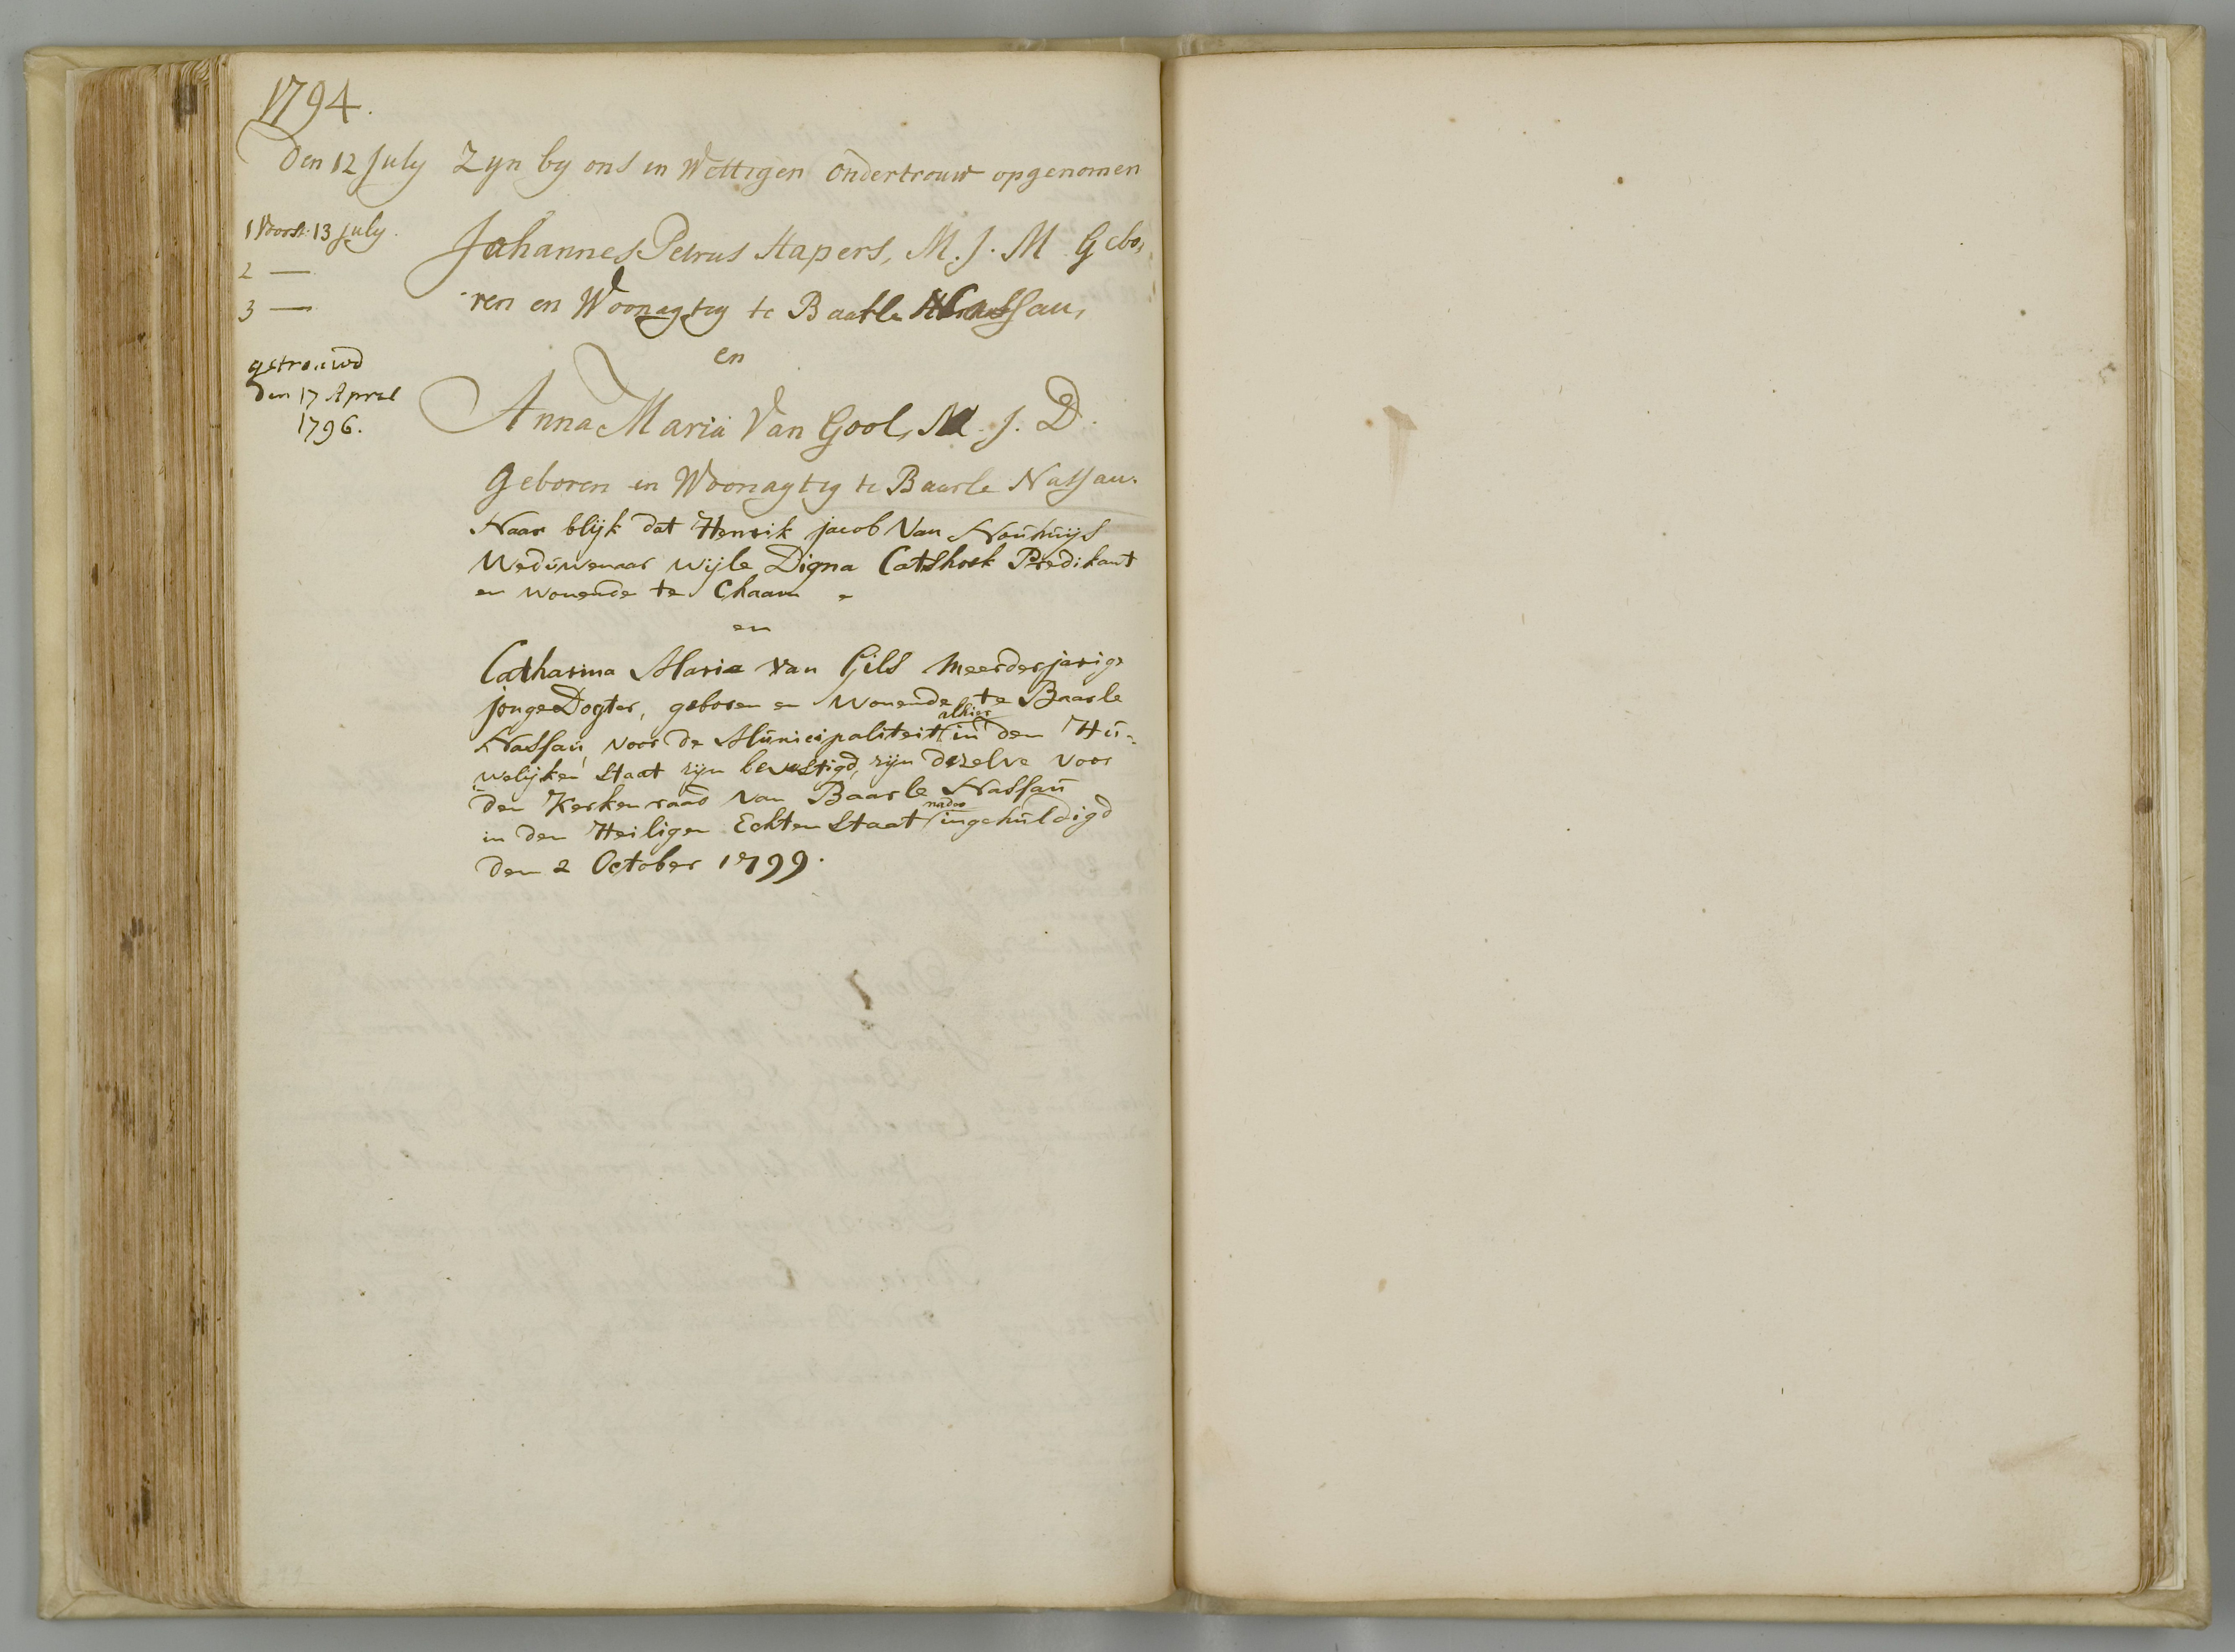 1794.
Den 12 July Zyn by ons in Wettigen ondertrouw opgenomen
1 Voorst. 13 july.
Johannes Petrus Stapers, M. J. M Gebo,
2 —
3 —
ren en Woonagtig te Baarle Nassau,
en
getrouwd
den 17 April
1796.
Anna Maria Van Gool, M. J. D.
Geboren en Woonagtig te Baarle Nassau.
Naar blijk dat Henrik jacob Van Nouhuijs
Weduwenaar wijle Digna Catshoek Predikant
en wonende te Chaam
en
Catharina Maria van Gils meerderjarige
jonge Dogter, geboren en wonende te Baarle
alhier
Nassau voor de Municipaliteit in den Hu-
welijken Staat zijn bevestigd, zijn dezelve voor
den Kerkenraad van Baarle Nassau
nader
in den Heiligen Echten Staat ingehuldigd
den 2 October 1799.